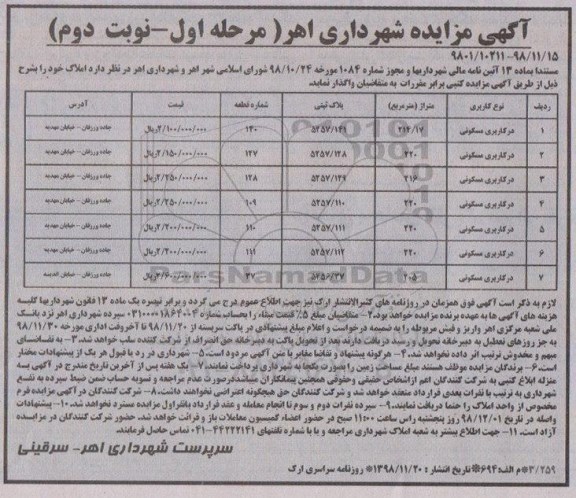 آگهی مزایده شهرداری اهر( مرحله اول-نوبت دوم)
۹۸۰۱/۱۰۲۱۱-۹۸/۱۱/۱۵
مستندا بماده ۱۳ آئین نامه مالی شهرداریها و مجوز شماره ۱۰۸۴ مورخه ۹۸/۱۰/۲۴ شورای اسلامی شهر اهر و شهرداری اهر در نظر دارد املاک خود را بشرح
ذیل از طریق آگهی مزایده کتبی برابر مقررات به متقاضیان واگذار نماید.
ردیف نوع کاربری متراژ (مترمربع) پلاک ثبتی شماره قطعه قیمت آدرس
۱ درکاربری مسکونی ۲۱۴/۱۷ ۵۲۵۷/۱۴۱ ۱۴۰ ۲/۱۰۰/۰۰۰/۰۰۰ریال جاده ورزقان - خیابان مهدیه
۲ درکاربری مسکونی ۲۲۰ ۵۲۵۷/۱۲۸ ۱۲۷ ۲/۱۵۰/۰۰۰/۰۰۰ریال جاده ورزقان - خیابان مهدیه
۳ درکاربری مسکونی ۲۱۶ ۵۲۵۷/۱۲۹ ۱۲۸ ۲/۲۵۰/۰۰۰/۰۰۰ریال جاده ورزقان - خیابان مهدیه
۴ درکاربری مسکونی ۲۲۰ ۵۲۵۷/۱۱۰ ۱۰۹ ۲/۲۵۰/۰۰۰/۰۰۰ریال جاده ورزقان - خیابان مهدیه
۵ درکاربری مسکونی ۲۲۰ ۵۲۵۷/۱۱۱ ۱۱۰ ۲/۲۰۰/۰۰۰/۰۰۰ریال جاده ورزقان - خیابان مهدیه
۶ درکاربری مسکونی ۲۲۰ ۵۲۵۷/۱۱۲ ۱۱۱ ۲/۲۰۰/۰۰۰/۰۰۰ریال جاده ورزقان - خیابان مهدیه
۷ درکاربری مسکونی ۲۰۵ ۵۲۵۶/۳۷ ۳۷ ۳/۶۰۰/۰۰۰/۰۰۰ریال جاده ورزقان - خیابان
ParsNamadData
لازم به ذکر است آگهی فوق همزمان در روزنامه های کثیرالانتشار ارک نیز جهت اطلاع عموم درج می گردد و برابر تبصره یک ماده ۱۳ قانون شهرداریها کلیسه
هزینه های آگهی ها به عهده برنده مزایده خواهد بود.۲- متقاضیان مبلغ ۵٪ قیمت مبناء را بحساب شماره ۰۳۱۰۰۰۰۱۸۶۴۰۰۴ سپرده شهرداری اهر نزد بانک
ملی شعبه مرکزی اهر واریز و فیش مربوطه را به ضمیمه درخواست و اعلام مبلغ پیشنهادی در پاکت سربسته از ۹۸/۱۱/۲۰ تا آخروقت اداری مورخه ۹۸/۱۱/۳۰
به جز روزهای تعطیل به دبیرخانه تحویل و رسید دریافت دارند بعد از تحویل پاکت به دبیرخانه حق انصراف از شرکت کننده سلب خواهد شد. ۳- به تقاضاهای
مبهم و مخدوش ترتیب اثر داده نخواهد شد. ۴- هرگونه پیشنهاد و تقاضا مغایر با متن آگهی مردود است. ۵- شهرداری در رد یا قبول هر یک از پیشنهادات مختار
است. ۶- برندگان مزایده موظف هستند مبلغ مساحت زمین را بصورت یکجا به شهرداری پرداخت نمایند. ۷- یک هفته پس از آخرین تاریخ مندرج در آگهی بسه
منزله ابلاغ کتبی به شرکت کنندگان اعم ازاشخاص حقیقی و حقوقی همچنین پیمانکاران میباشد.درصورت عدم مراجعه و تسویه حساب ضمن ضبط سپرده به نفسع
شهرداری به ترتیب با نفرات بعدی قرار داد منعقد خواهد شد و شرکت کنندگان حق هیچگونه اعتراضی نخواهند داشت. ۸- شرکت کنندگان در آگهی مزایده فرم
مخصوص از واحد املاک را حتما دریافت نمایند. ۹- سپرده نفرات دوم و سوم تا انجام معامله و عقد قرارداد بانفراول مزایده مسترد نخواهد شد. ۱۰- پیشنهادات
واصله در تاریخ ۹۸/۱۲/۰۱ روز پنجشنبه راس ساعت ۱۱:۰۰ صبح در حضور اعضاء کمیسیون معاملات باز و قرائت خواهد شد. حضور شرکت کنندگان در مزایسده
آزاد است. ۱۱- جهت اطلاع بیشتر به شعبه املاک شهرداری مراجعه و یا با شماره تلفنهای ۰۴۱-۴۴۲۲۲۱۴۱ تماس حاصل فرمایند.
سرپرست شهرداری اهر- سرقینی
۳/۲۵۹*م الف:۶۹۴*تاریخ انتشار : ۱۳۹۸/۱۱/۲۰* روزنامه سراسری ارک